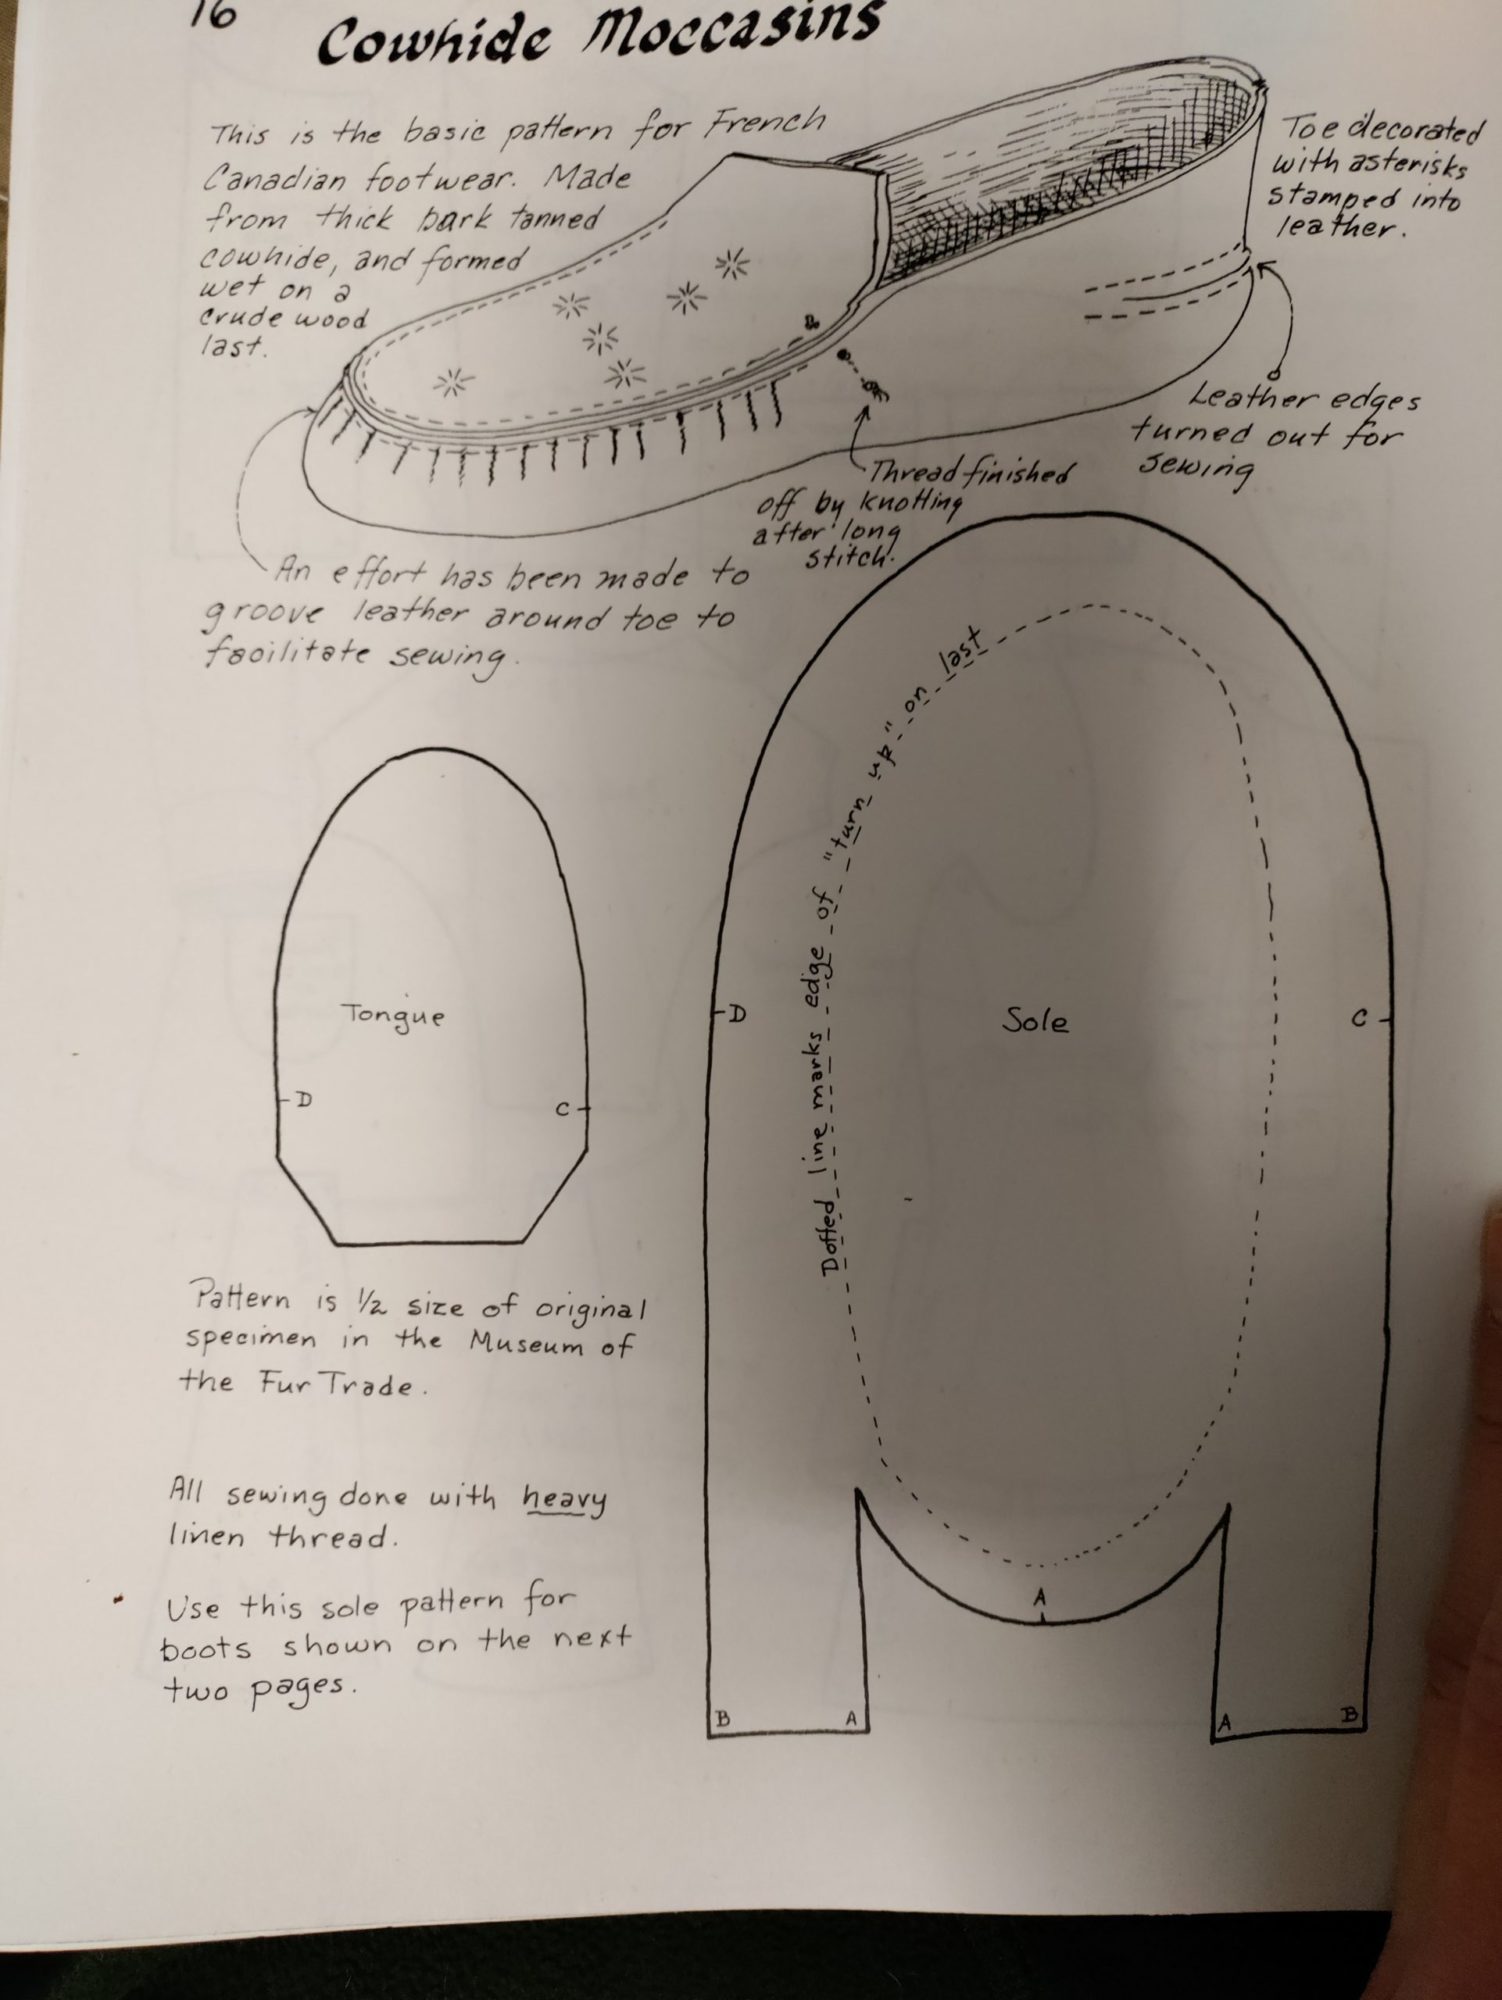 16
Cowhide Moccasins
This is the basic pattern for French
Canadian footwear. Made
from thick bark tanned
cowhide, and formed
wet on a
crude wood
last.
Toe decorated
with asterisks
stamped into
leather.
Leather edges
turned out for
sewing
Thread finished
off by knotting
after long
stitch.
An effort has been made to
groove leather around toe to
facilitate sewing.
Tongue
D
C
Dotted line marks edge of "turn up" on last
D
Sole
C
A
B
A
A
B
Pattern is 1/2 size of original
specimen in the Museum of
the Fur Trade.
All sewing done with heavy
linen thread.
Use this sole pattern for
boots shown on the next
two pages.